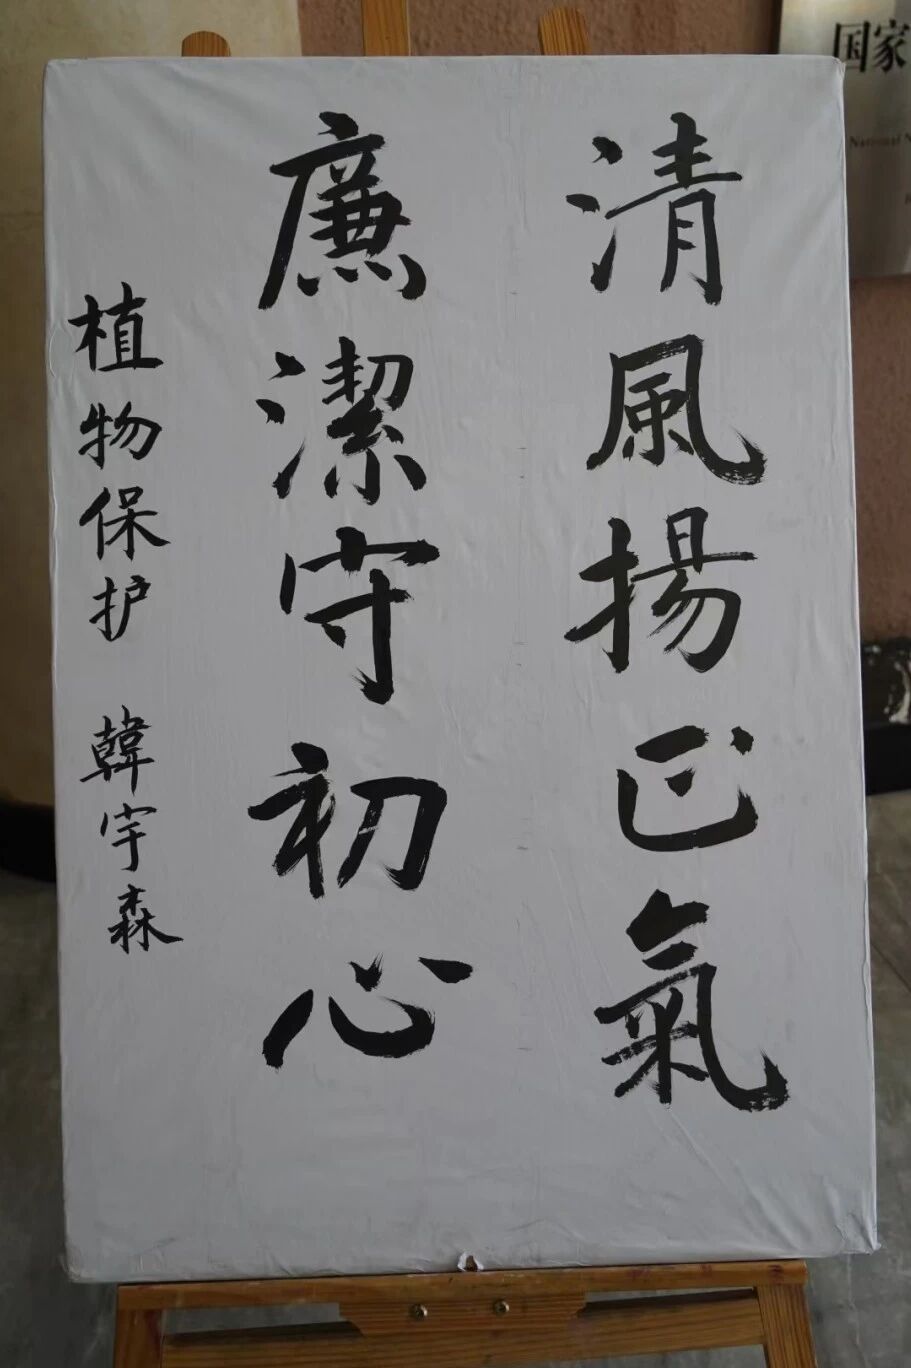 清風揚正氣
廉潔守初心
植物保护 韓宇森
国家
National